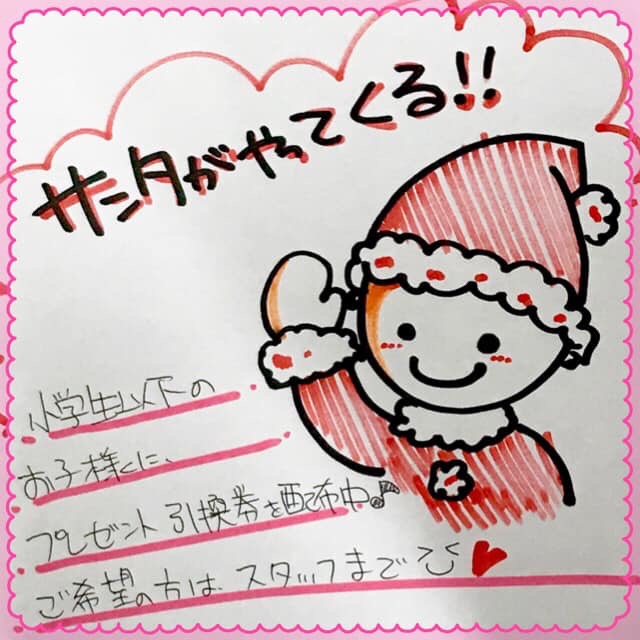 サンタがやってくる!!
小学生以下の
お子様に、
プレゼント引換券を配布中♪
ご希望の方は、スタッフまで